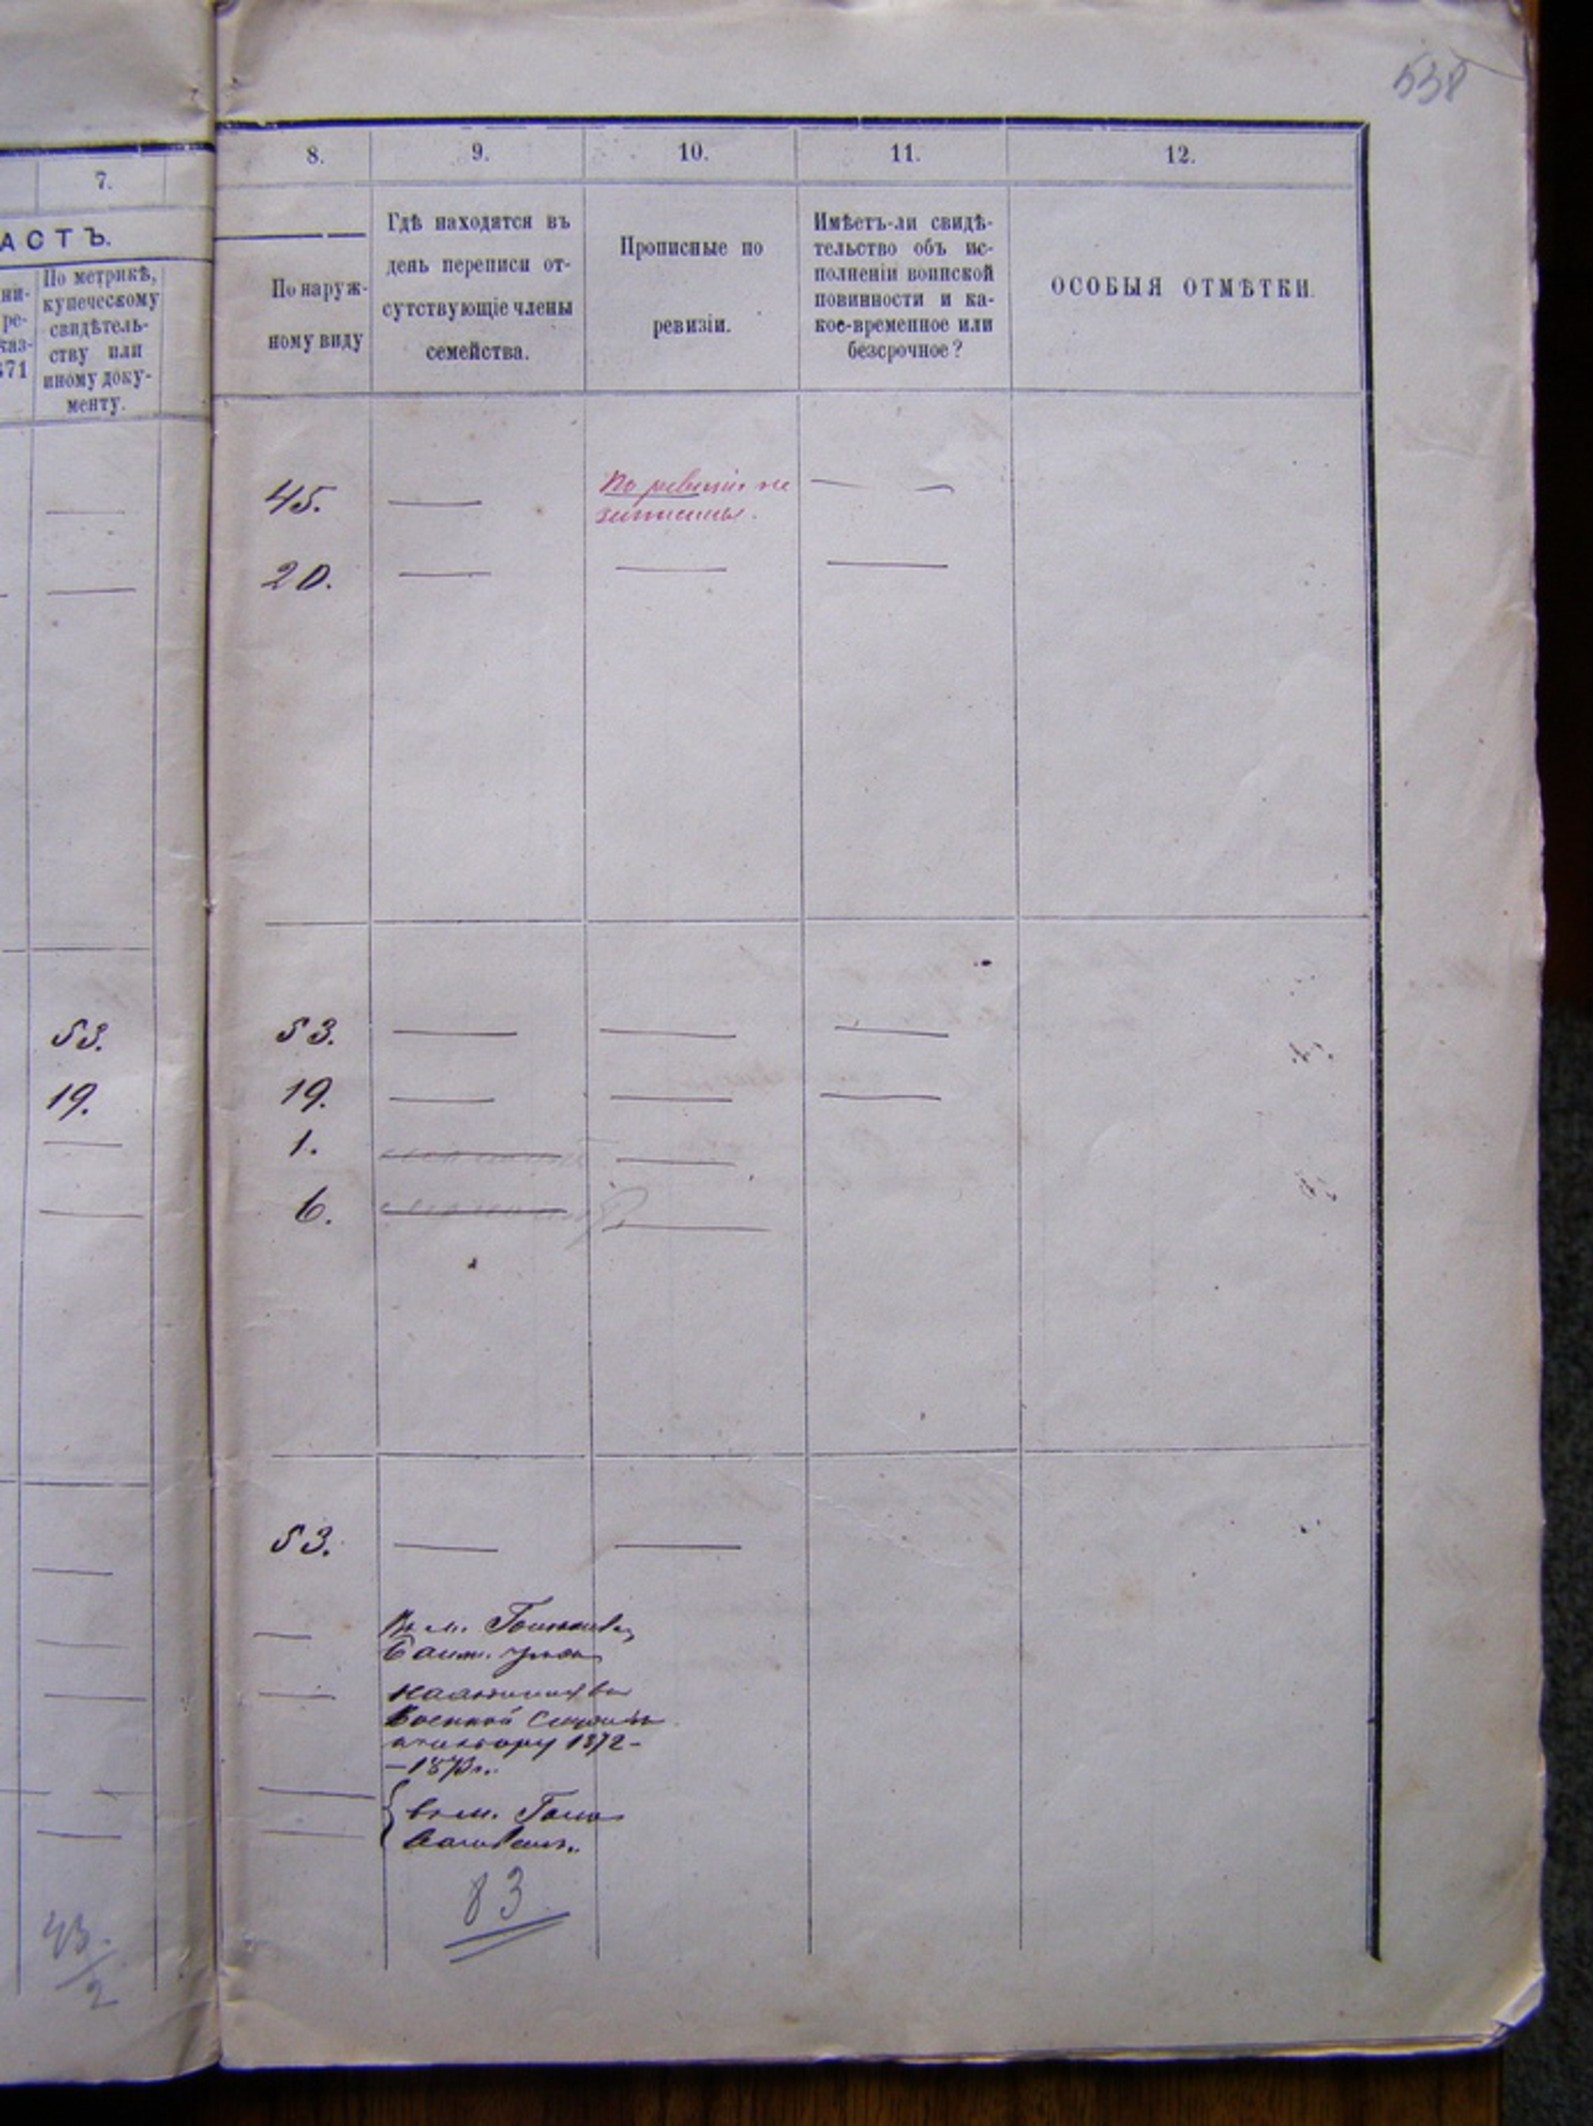 538
7.
АСТЪ.
ни-
ре-
каз-
871
По метрикѣ,
купеческому
свидѣтель-
ству или
иному доку-
менту.
8.
9.
10.
11.
12.
По наруж-
ному виду
Гдѣ находятся въ
день переписи от-
сутствующіе члены
семейства.
Прописные по
ревизіи.
Имѣетъ-ли свидѣ-
тельство объ ис-
полненіи воинской
повинности и ка-
кое-временное или
безсрочное?
ОСОБЫЯ ОТМѢТКИ.
45.
По ревизіи не
записаны.
20.
53.
53.
19.
19.
1.
6.
53.
Въ м.
уѣзда
Военной Службѣ
1872-
{ въ м.
83
43.
2